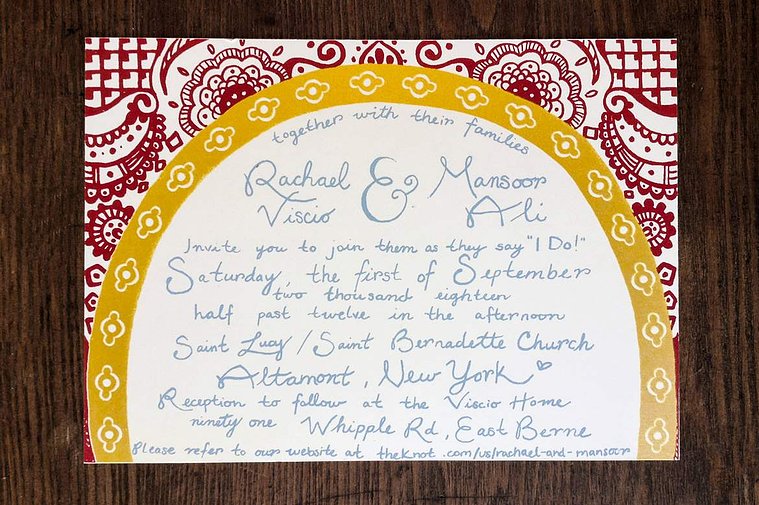 together with their families
Rachael & Mansoor
Viscio Ali
Invite you to join them as they say "I Do!"
Saturday, the first of September
two thousand eighteen
half past twelve in the afternoon
Saint Lucy / Saint Bernadette Church
Altamont, New York ♡
Reception to follow at the Viscio Home
ninety one Whipple Rd, East Berne
Please refer to our website at theknot.com/us/rachael-and-mansoor